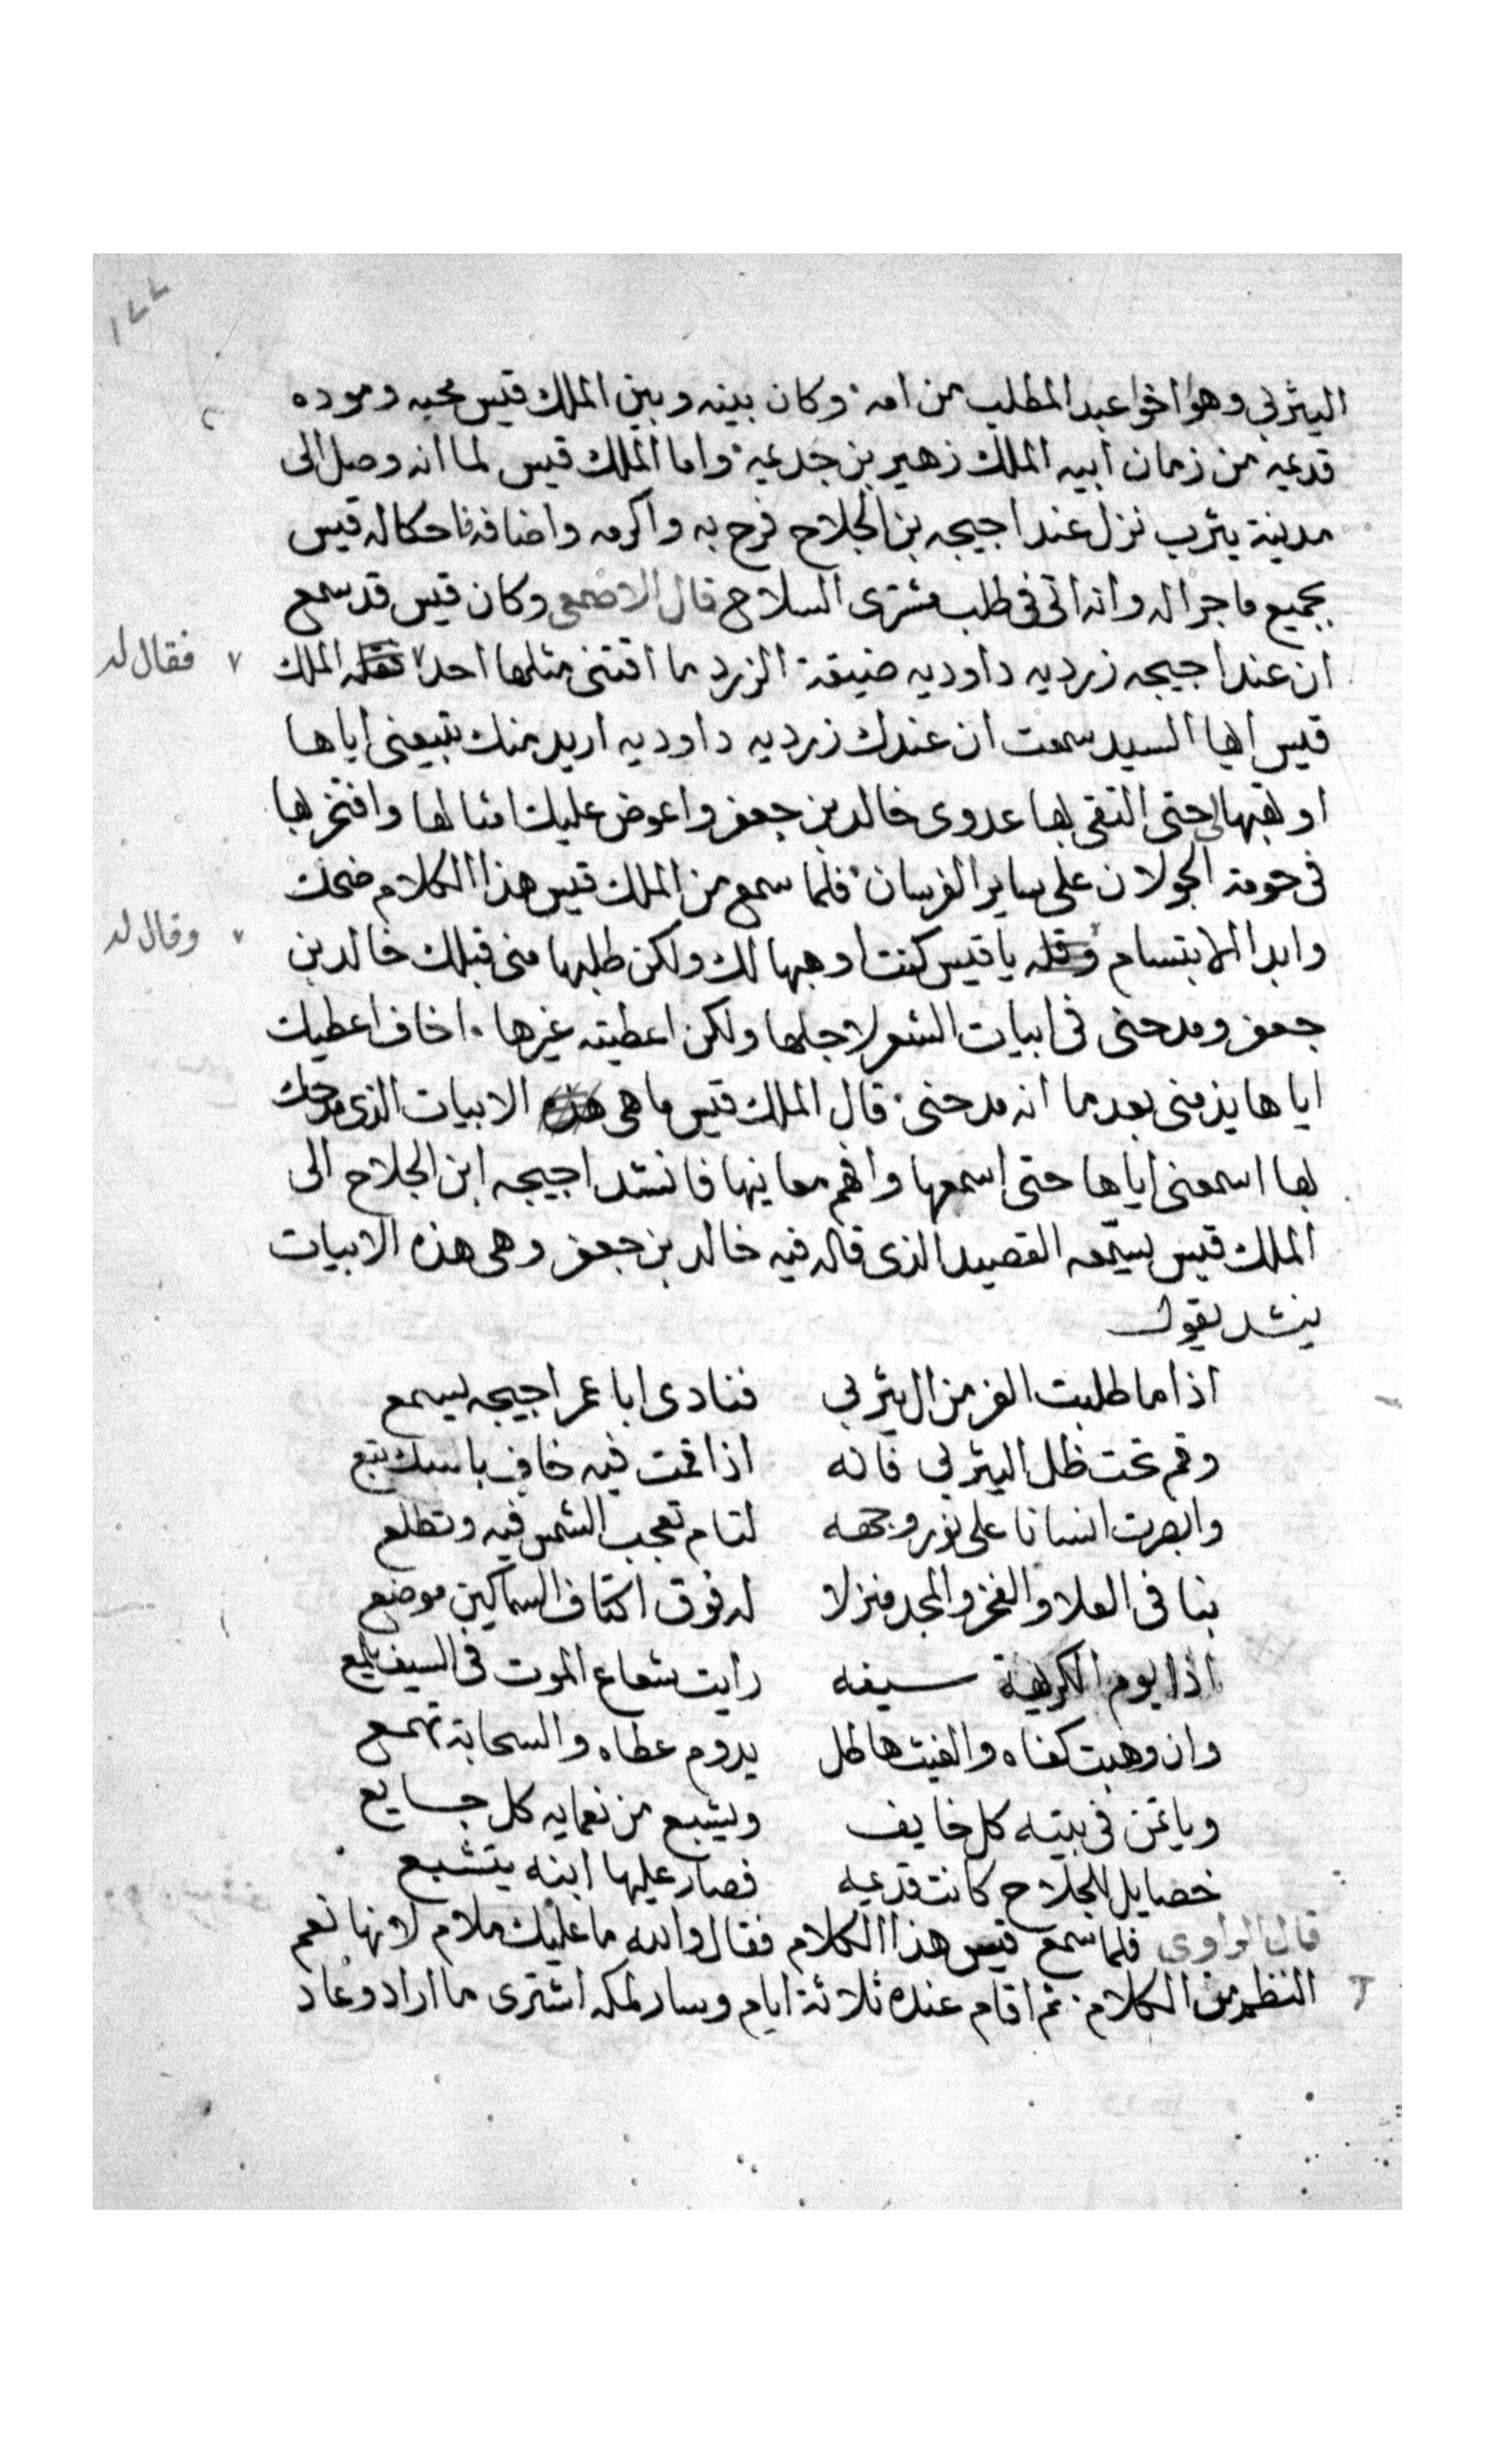 ١٧٧
اليثربى وهوا اخوا عبد المطلب من امه وكان بينه وبين الملك قيس محبه وموده
قديمه من زمان ابيه الملك زهير بن جديمة واما الملك قيس لما انه وصل الى
مدينة يثرب نزل عند اجيحه بن الجلاح فرح به واكرمه واضافه فاحكا له قيس
بجميع ما جرا له وانه اتى فى طلب مشترى السلاح قال الاصمعى وكان قيس قد سمع
ان عند اجيحه زرديه داوديه ضيقة الزرد ما اقتنى مثلها احد ٧ الملك ٧ فقال له
قيس ايها السيد سمعت ان عندك زرديه داوديه اريد منك تبيعنى اياها
او تهبها لى حتى التقى بها عدوى خالد بن جعفر واعوض عليك امثالها وافتخر بها
فى حومة الجولان على ساير الفرسان فلما سمع من الملك قيس هذا الكلام ضحك
وابدا الابتسام يا قيس كنت اوهبها لك ولكن طلبها منى قبلك خالد بن ٧ وقال له
جعفر ومدحنى فى ابيات الشعر لاجلها ولكن اعطيته غيرها اخاف اعطيك
اياها يذمنى بعد ما انه مدحنى قال الملك قيس ما هى الابيات الذى مدحك
بها اسمعنى اياها حتى اسمعها وافهم معانيها فانشد اجيحه ابن الجلاح الى
الملك قيس يسمعه القصيد الذى قاله فيه خالد بن جعفر وهى هذه الابيات
ينشد يقول
اذا ما طلبت الفز من ال يثربى فنادى ابا عمر اجيحه يسمع
وقم تحت ظل اليثربى فانه اذا قمت فيه خاف باسك تبع
وابصرت انسانا على نور وجهه لتام تعجب الشمس فيه وتطلع
بنا فى العلا والفخر والمجد منزلا له فوق اكتاف السماكين موضع
اذا يوم الكريهة سيفه رايت شعاع الموت فى السيف يلمع
وان وهبت كفاه والغيث هاطل يدوم عطاه والسحابة تهمع
وياتمن فى بيته كل خايف ويشبع من نعمايه كل جايع
خصايل للجلاح كانت قديمه فصار عليها ابنه يتشبع
قال الراوى فلما سمع قيس هذا الكلام فقال والله ما عليك ملام لانها نعم
النظم من الكلام ثم اقام عنده ثلاثة ايام وسار لمكه اشترى ما اراد وعاد